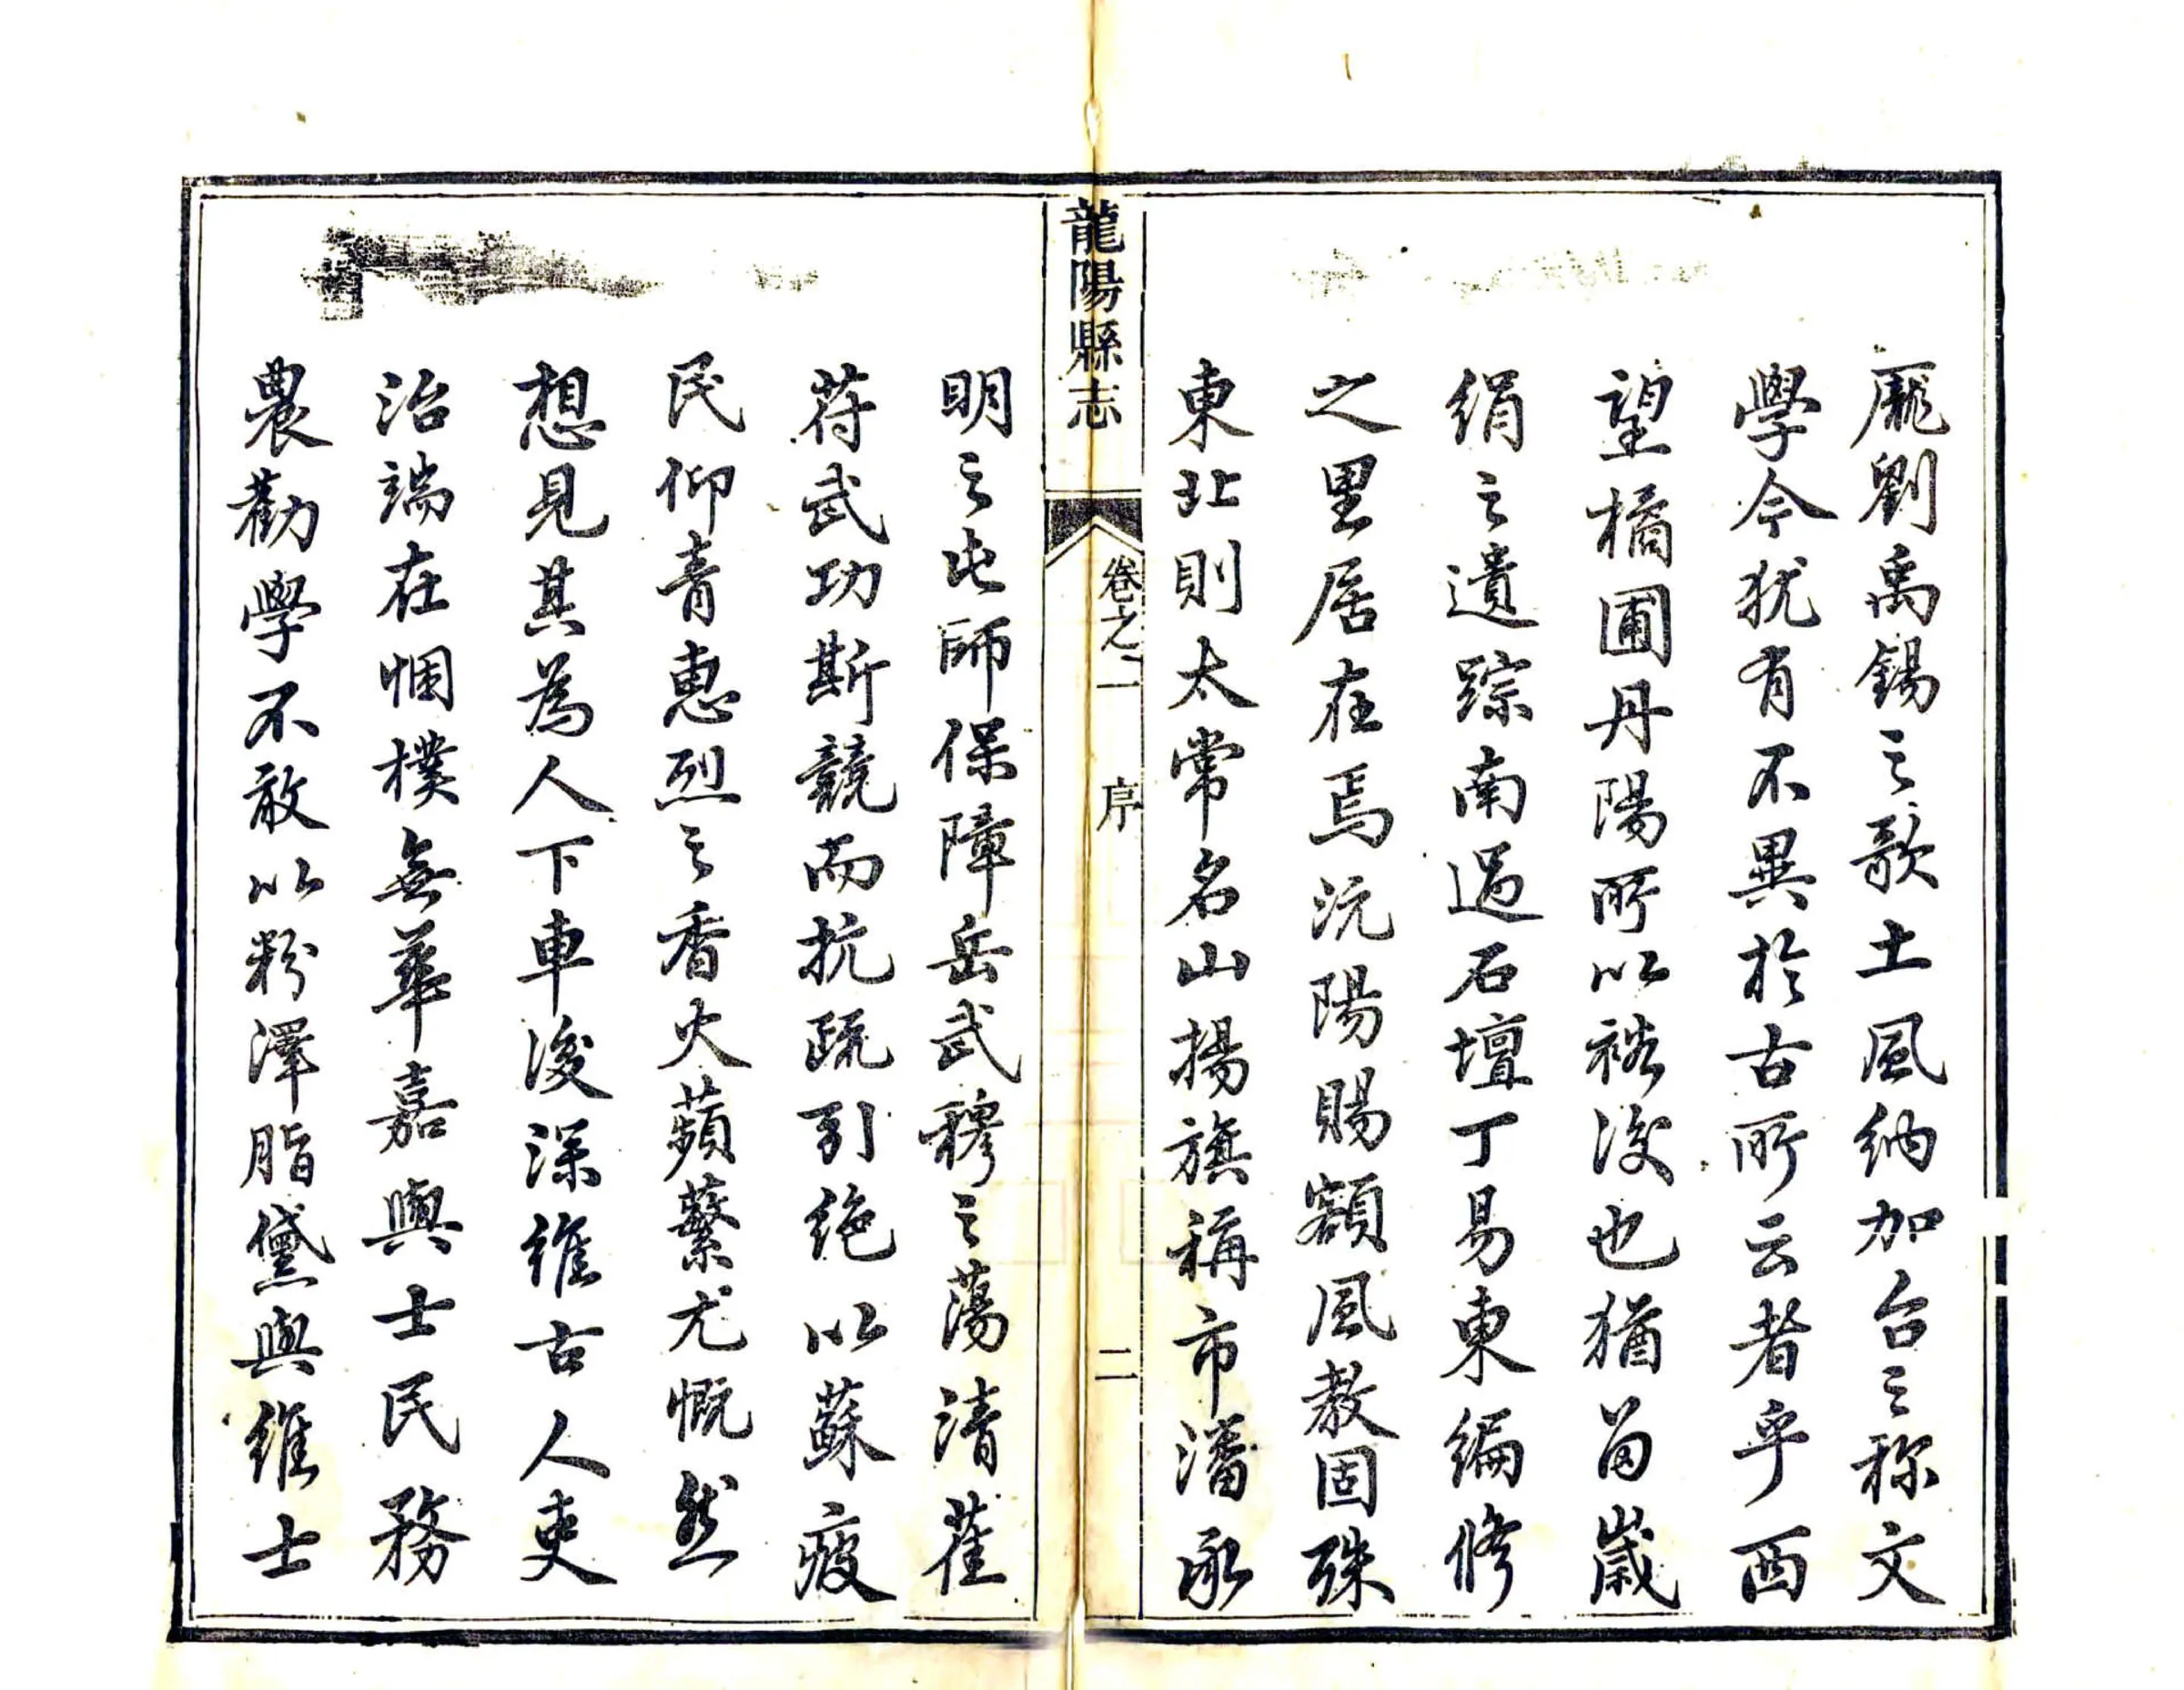 龐劉禹錫之歌土風納加台之称文
學今犹有不異於古所云者乎西
望橘圃丹陽所以裕後也猶留歲
絹之遺踪南過石壇丁易東編修
之里居在焉沅陽賜額風教固殊
東北則太常名山揚旗稱市潘承
龍陽縣志
卷之一
序
二
明之屯師保障岳武穆之蕩清萑
苻武功斯競而抗疏引绝以蘇疲
民仰青惠烈之香火蘋蘩尤慨然
想見其為人下車後深維古人吏
治端在悃樸無華嘉與士民務
農勸學不敢以粉澤脂黛與維士